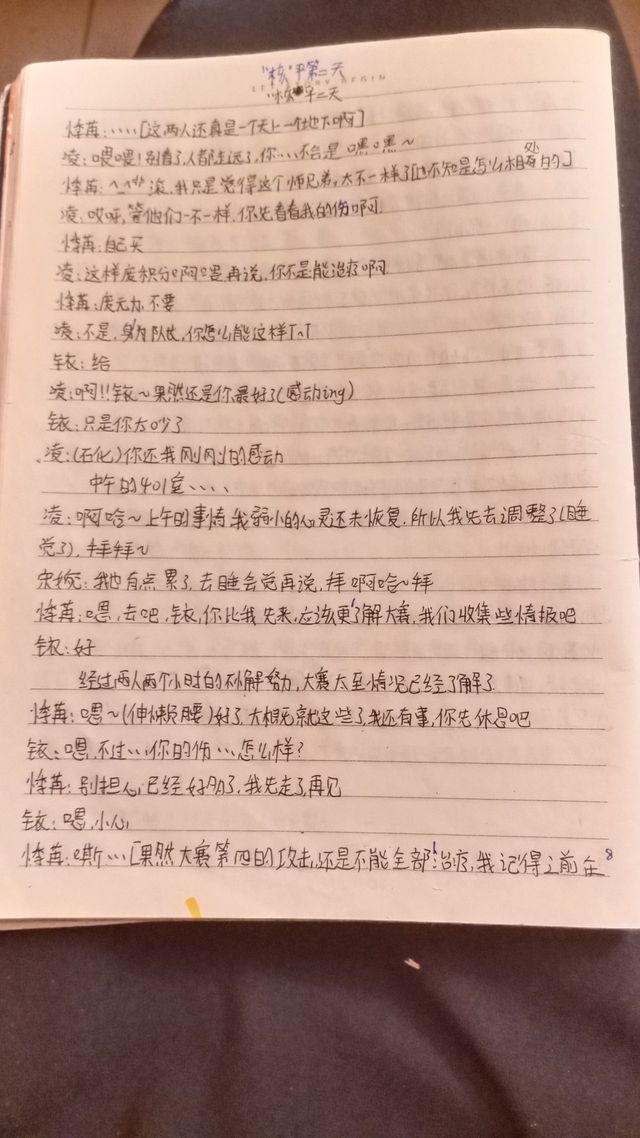 "核"平第二天
"核"平二天
烽苒:....[这两人还真是一个天上一个地下啊]
凌:喂喂!别看了,人都走远了,你...不会是嘿嘿~
烽苒:^_^滚,我只是觉得这个师兄弟,太不一样了[也不知是怎么相处的]
凌:哎呀,管他们一不一样,你先看看我的伤啊
烽苒:自己买
凌:这样废积分啊喂,再说,你不是能治疗啊
烽苒:废元力,不要
凌:不是,身为队友,你怎么能这样T^T
铱:给
凌:啊!!铱~果然还是你最好了(感动ing)
铱:只是你太吵了
凌:(石化)你还我刚刚的感动
中午的401室....
凌:啊哈~上午的事情,我弱小的心灵还未恢复,所以我先去调整了(睡
觉了),拜拜~
宋婉:我也有点累了,去睡会觉再说,拜啊哈~拜
烽苒:嗯,去吧,铱,你比我先来,应该更了解大赛,我们收集些情报吧
铱:好
经过两人两个小时的不懈努力,大赛大至情况已经了解了
烽苒:嗯~(伸懒腰)好了,大概就这些了,我还有事,你先休息吧
铱:嗯,不过...你的伤...怎么样?
烽苒:别担心,已经好多了,我先走了,再见
铱:嗯,小心
烽苒:嘶...[果然大赛第四的攻击,还是不能全部治疗,我记得之前在
8